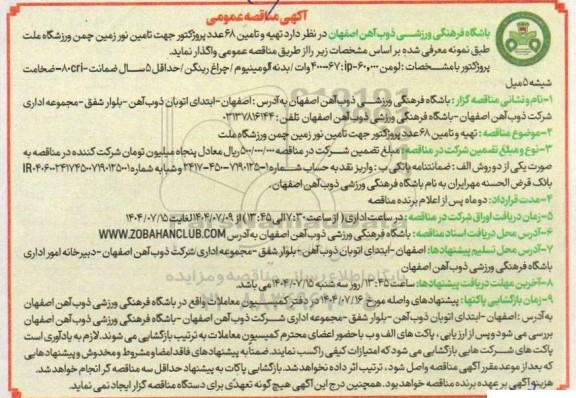 آگهی مناقصه عمومی
باشگاه فرهنگی ورزشی ذوب آهن اصفهان در نظر دارد تهیه و تامین ۶۸ عدد پروژکتور جهت تامین نور زمین چمن ورزشگاه ملت
طبق نمونه معرفی شده بر اساس مشخصات زیر را از طریق مناقصه عمومی واگذار نماید.
پروژکتور با مشخصات : لومن ۶۰,۰۰۰- ip:۶۷-۴۰۰ وات /بدنه آلومینیوم /چراغ رینگن /حداقل ۵ سال ضمانت -cri۸۰-ضخامت
شیشه ۵ میل
۱-نام و نشانی مناقصه گزار : باشگاه فرهنگی ورزشی ذوب آهن اصفهان به آدرس : اصفهان -ابتدای اتوبان ذوب آهن- بلوار شفق -مجموعه اداری
شرکت ذوب آهن اصفهان -باشگاه فرهنگی ورزشی ذوب آهن اصفهان تلفن : ۰۳۱۳۷۸۱۶۱۴۴
۲-موضوع مناقصه : تهیه و تامین ۶۸ عدد پروژکتور جهت تامین نور زمین چمن ورزشگاه ملت
۳- نوع و مبلغ تضمین شرکت در مناقصه : مبلغ تضمین شرکت در مناقصه ۵۰۰/۰۰۰/۰۰۰ ریال معادل پنجاه میلیون تومان شرکت کننده در مناقصه به
صورت یکی از دو روش الف : ضمانتنامه بانکی ب : واریز نقد به حساب شماره
بانک قرض الحسنه مهر ایران به نام باشگاه فرهنگی ورزشی ذوب آهن اصفهان.
۴-مدت قرارداد: دو ماه پس از اعلام برنده مناقصه
۵- زمان دریافت اوراق شرکت در مناقصه : در ساعات اداری ( از ساعت ۷:۳۰ الی ۱۳:۴۵ ) از ۱۴۰۴/۰۷/۰۹ لغایت ۱۴۰۴/۰۷/۱۵
۶-آدرس محل دریافت اسناد مناقصه : باشگاه فرهنگی ورزشی ذوب آهن اصفهان به آدرس WWW.ZOBAHANCLUB.COM
۷-آدرس محل تسلیم پیشنهادها: اصفهان -ابتدای اتوبان ذوب آهن- بلوار شفق - مجموعه اداری شرکت ذوب آهن اصفهان - دبیرخانه امور اداری
باشگاه فرهنگی ورزشی ذوب آهن اصفهان
۸-آخرین مهلت دریافت پیشنهادها: ساعت ۱۳:۴۵ /روز سه شنبه ۱۴۰۴/۰۷/۱۵ می باشد
۹- زمان بازگشایی پاکتها : پیشنهادهای واصله مورخ ۱۴۰۴/۰۷/۱۶ در دفتر کمیسیون معاملات واقع در باشگاه فرهنگی ورزشی ذوب آهن اصفهان
به آدرس : اصفهان - ابتدای اتوبان ذوب آهن -بلوار شفق - مجموعه اداری شرکت ذوب آهن اصفهان - باشگاه فرهنگی ورزشی ذوب آهن اصفهان
بررسی می شود و پس از ارزیابی ، پاکت های الف وب با حضور اعضای محترم کمیسیون معاملات به ترتیب بازگشایی می شوند. لازم به یادآوری است
پاکت های شرکت هایی بازگشایی می شود که امتیازات کیفی را کسب نمایند. ضمنا به پیشنهادهای فاقد امضا و مشروط و مخدوش و پیشنهادهایی
که بعد از موعد مقرر آگهی مناقصه واصل شود ، ترتیب اثر داده نخواهد شد. بازگشایی پاکات به پیشنهاد حداقل سه مناقصه گر انجام خواهد شد.
هزینه آگهی بر عهده برنده مناقصه خواهد بود. همچنین درج این آگهی هیچ گونه تعهدی برای دستگاه مناقصه گزار ایجاد نمی نماید.